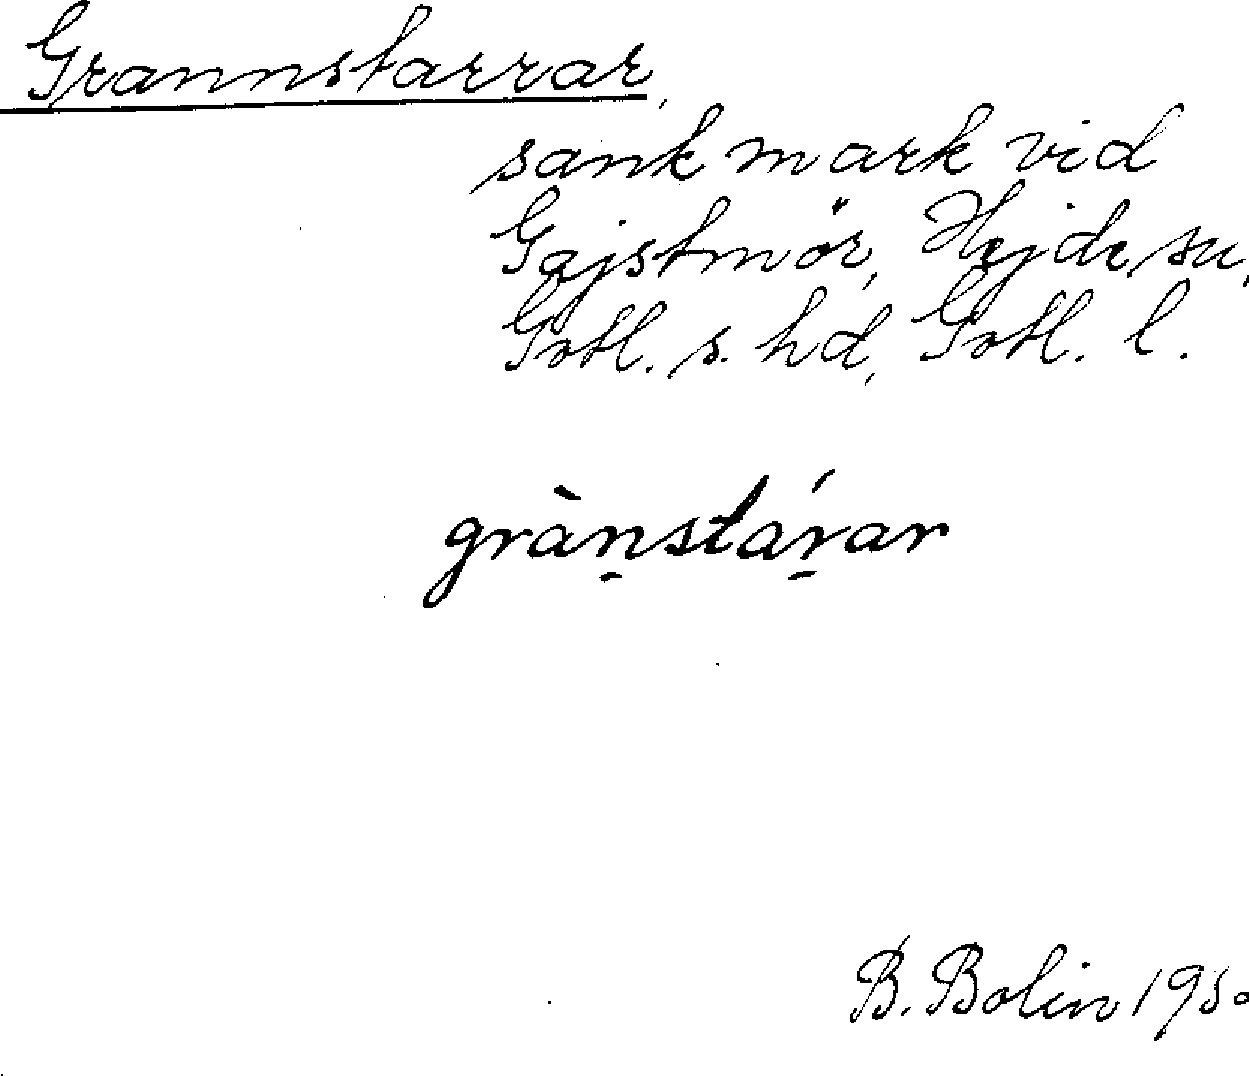 Grannstarrar,
sank mark vid
Gajstmör, Hejde sn,
Gotl. s. hd, Gotl. l.
grànṣtáṛar
B. Bolin 1950